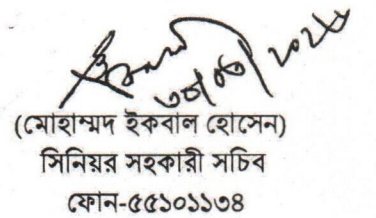 (মোহাম্মদ ইকবাল হোসেন)
সিনিয়র সহকারী সচিব
ফোন-৫৫১০১১৩৪